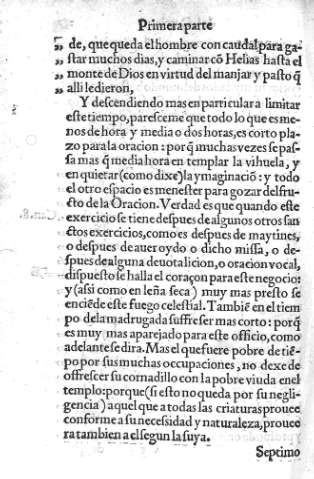 Primera parte
„ de, que queda el hombre con caudal para ga-
„ star muchos dias, y caminar cõ Helias hasta el
„ monte de Dios en virtud del manjar y pasto q̃
„ alli le dieron,
Y descendiendo mas en particular a limitar
este tiempo, paresceme que todo lo que es me-
nos de hora y media o dos horas, es corto pla-
zo para la oracion: porq̃ muchas vezes se pas-
sa mas q̃ media hora en templar la vihuela, y
en quietar (como dixe) la ymaginaciõ: y todo
el otro espacio es menester para gozar del fru-
sto de la Oracion. Verdad es que quando este
exercicio se tiene despues de algunos otros san
ctos exercicios, como es despues de maytines,
o despues de auer oydo o dicho missa, o de-
spues de alguna deuota licion, o oracion vocal,
dispuesto se halla el coraçon para este negocio:
y (assi como en leña seca) muy mas presto se
enciẽde este fuego celestial. Tambiẽ en el tiem
po de la madrugada suffre ser mas corto: porq̃
es muy mas aparejado para este officio, como
adelante se dira. Mas el que fuere pobre de tiẽ-
po por sus muchas occupaciones, no dexe de
offrescer su cornadillo con la pobre viuda en el
templo: porque (si esto no queda por su negli-
gencia) aquel que a todas las criaturas prouee
conforme a su necessidad y naturaleza, prouee
ra tambien a el segun la suya.
Septimo